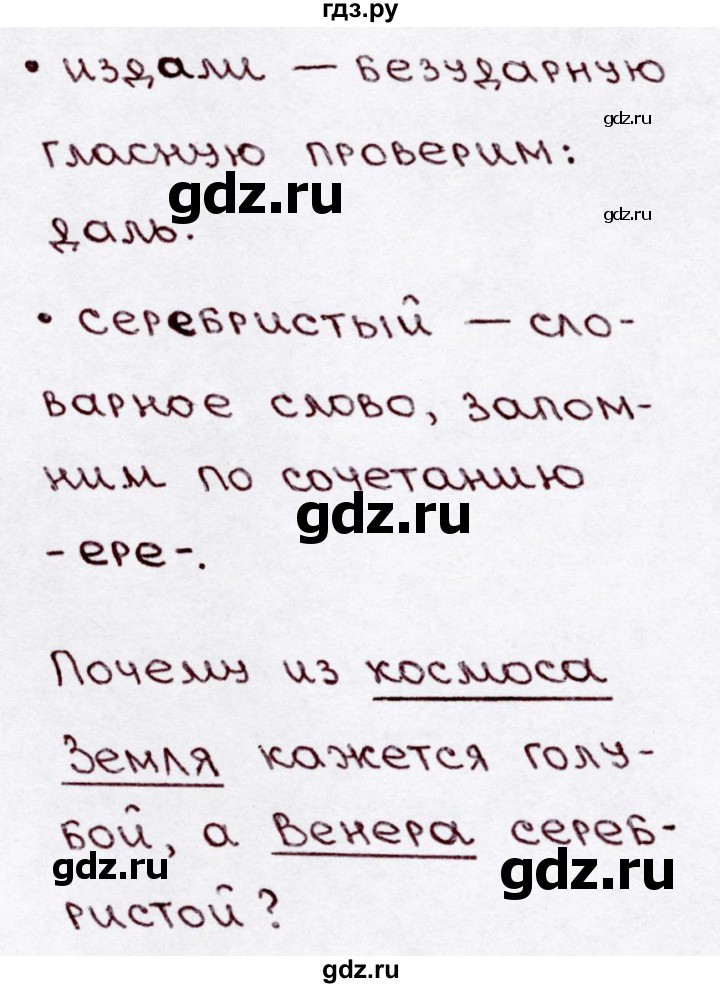 гдз.ру
• издали – безударную
gdz.ru
гласную проверим:
gdz.ru
gdz.ru
даль.
• серебристый – сло-
варное слово, запом-
ним по сочетанию
gdz.ru
-ере-.
Почему из космоса
Земля кажется голу-
бой, а Венера сереб-
gdz.ru
gdz.ru
ристой?
gdz.ru